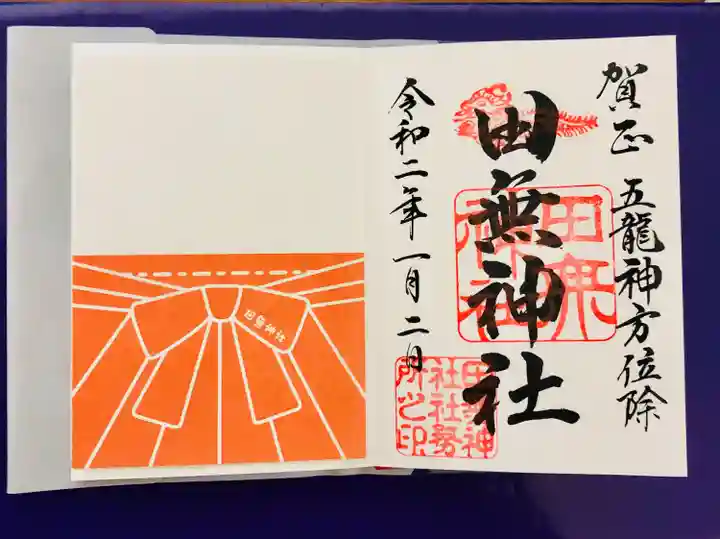 賀正 五龍神方位除
田無神社
令和二年一月二日
田無神社
田無神社
田無神社
社務
所之印